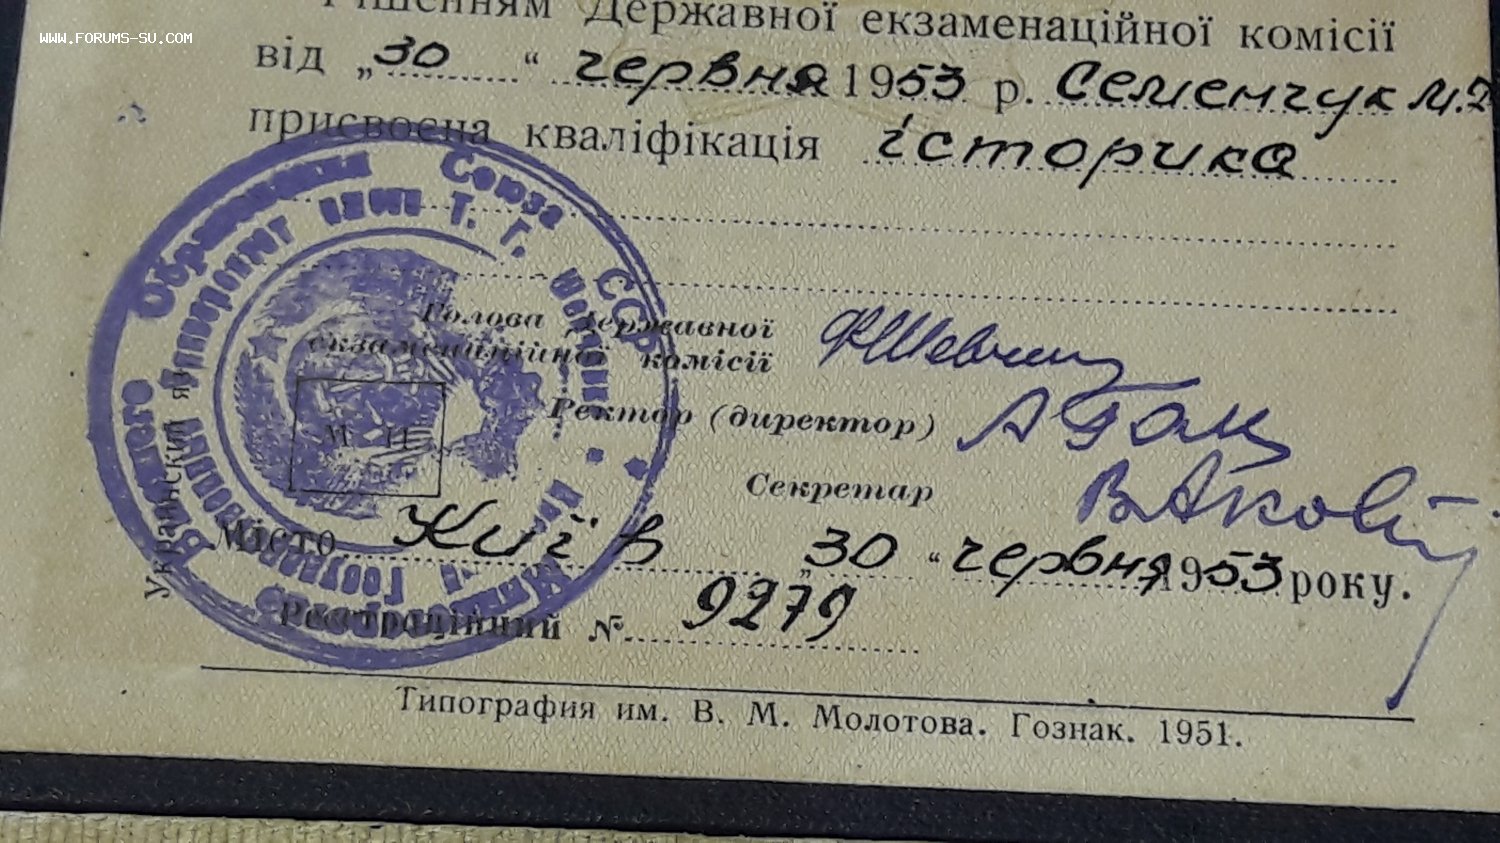 WWW.FORUMS-SU.COM
Рішенням Державної екзаменаційної комісії
від „30“ червня 1953 р. Семенчук М.
присвоєна кваліфікація історика
Голова Державної
екзаменаційної комісії
Ректор (директор)
Секретар
М. П.
Місто Київ „30“ червня 1953 року.
Реєстраційний № 9279
Типография им. В. М. Молотова. Гознак. 1951.
Украинский яз.
Высшего Образования Союза ССР
Государственный Университет имени Т. Г. Шевченко